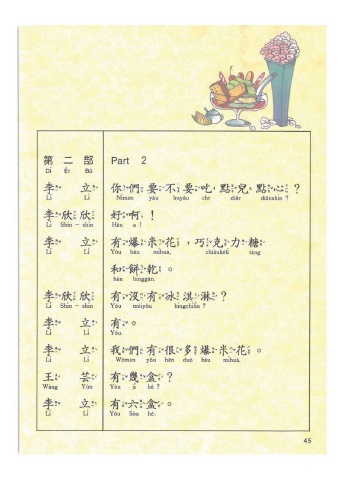 第二部 Part 2
Dì Èr Bù
李立 你們要不要吃點兒點心？
Lǐ Lì Nǐmen yào búyào chī diǎr diǎnshin ?
李欣欣 好啊！
Lǐ Shīn-shīn Hǎu a !
李立 有爆米花，巧克力糖
Lǐ Lì Yǒu bàu mǐhuā, chiǎukèlì táng
和餅乾。
hàn bǐnggān.
李欣欣 有沒有冰淇淋？
Lǐ Shīn-shīn Yǒu méiyǒu bīngchílín ?
李立 有。
Lǐ Lì Yǒu.
李立 我們有很多爆米花。
Lǐ Lì Wǒmen yǒu hěn duō bàu mǐhuā.
王芸 有幾盒？
Wáng Yún Yǒu jǐ hé ?
李立 有六盒。
Lǐ Lì Yǒu lìou hé.
45